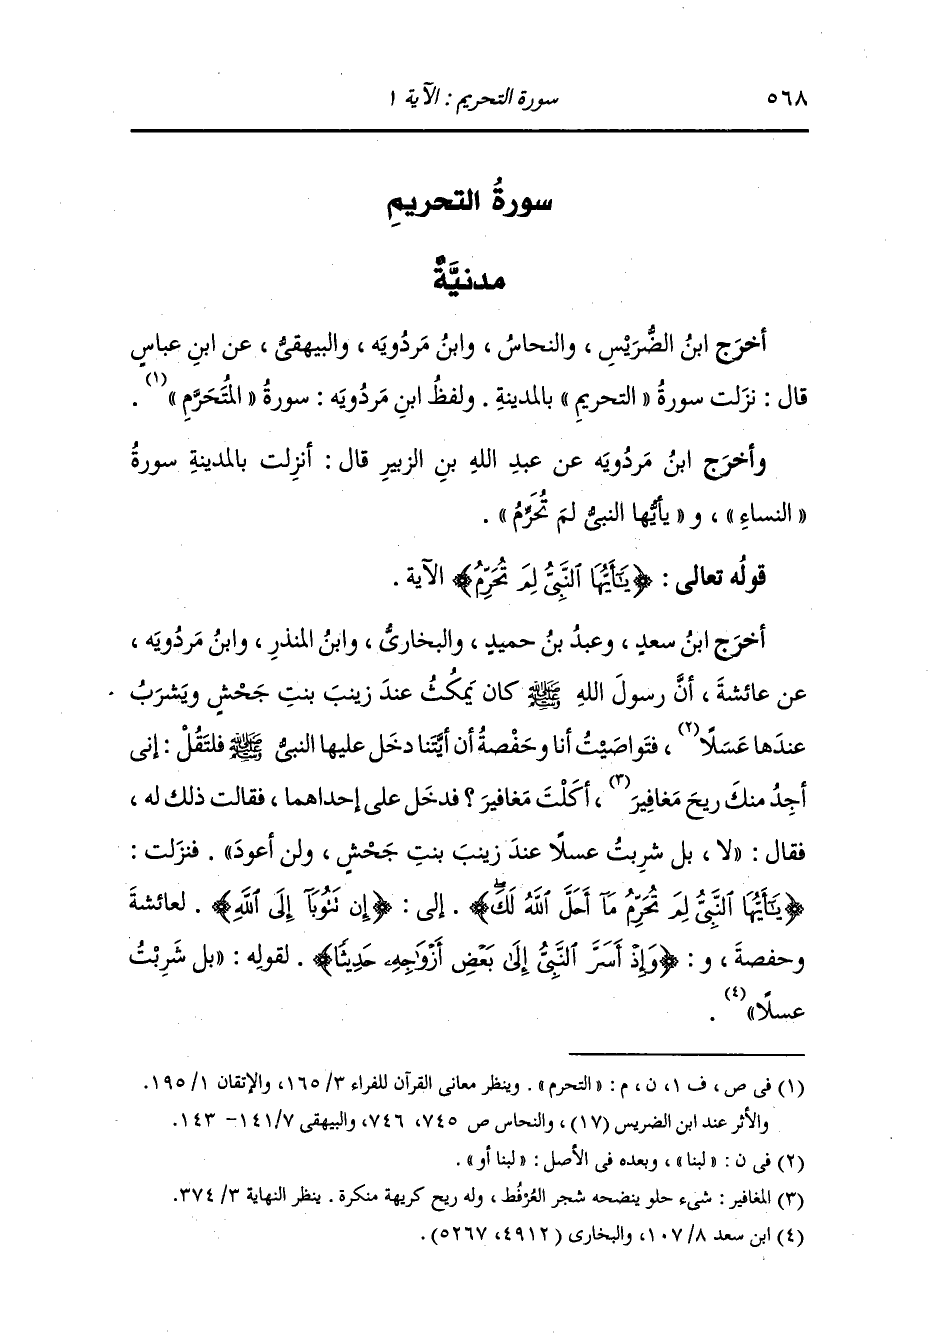 ٥٦٨
سورة التحريم : الآية ١
سورةُ التحريمِ
مدنيَّةٌ
أخرَج ابنُ الضُّرَيْسِ ، والنحاسُ ، وابنُ مَردُويَه ، والبيهقىُّ ، عن ابنِ عباسٍ
قال : نزَلت سورةُ « التحريمِ » بالمدينةِ . ولفظُ ابنِ مَردُويَه : سورةُ « المُتَحَرَّمِ »(١) .
وأخرَج ابنُ مَردُويَه عن عبدِ اللهِ بنِ الزبيرِ قال : أُنزِلت بالمدينةِ سورةُ
« النساءِ » ، و « يأيُّها النبىُّ لمَ تُحَرِّمُ » .
قولُه تعالى : ﴿يَٰٓأَيُّهَا ٱلنَّبِىُّ لِمَ تُحَرِّمُ﴾ الآية .
أخرَج ابنُ سعدٍ ، وعبدُ بنُ حميدٍ ، والبخارىُّ ، وابنُ المنذرِ ، وابنُ مَردُويَه ،
عن عائشةَ ، أنَّ رسولَ اللهِ ﷺ كان يَمكُثُ عندَ زينبَ بنتِ جَحْشٍ ويَشرَبُ
عندَها عَسَلًا(٢) ، فتَواصَيْتُ أنا وحَفْصةُ أن أيَّتَنا دخَل عليها النبىُّ ﷺ فلتَقُلْ : إنى
أجِدُ منكَ ريحَ مَغافِيرَ(٣) ، أكَلْتَ مَغافيرَ ؟ فدخَل على إحداهما ، فقالت ذلك له ،
فقال : «لا ، بل شرِبتُ عسلًا عندَ زينبَ بنتِ جَحْشٍ ، ولن أعودَ» . فنزَلت :
﴿يَٰٓأَيُّهَا ٱلنَّبِىُّ لِمَ تُحَرِّمُ مَآ أَحَلَّ ٱللَّهُ لَكَۖ﴾ . إلى : ﴿إِن تَتُوبَآ إِلَى ٱللَّهِ﴾ . لعائشةَ
وحفصةَ ، و : ﴿وَإِذْ أَسَرَّ ٱلنَّبِىُّ إِلَىٰ بَعْضِ أَزْوَٰجِهِۦ حَدِيثًا﴾ . لقولِه : «بل شَرِبْتُ
عسلًا»(٤) .
(١) فى ص ، ف ١، ن ، م : « التحرم» . وينظر معانى القرآن للفراء ٣/ ١٦٥، والإتقان ١/ ١٩٥.
والأثر عند ابن الضريس (١٧) ، والنحاس ص ٧٤٥، ٧٤٦، والبيهقى ٧/ ١٤١- ١٤٣.
(٢) فى ن : « لبنا» ، وبعده فى الأصل : « لبنا أو» .
(٣) المغافير : شىء حلو ينضحه شجر العُرْفُط ، وله ريح كريهة منكرة . ينظر النهاية ٣/ ٣٧٤.
(٤) ابن سعد ٨/ ١٠٧، والبخارى ( ٤٩١٢، ٥٢٦٧).